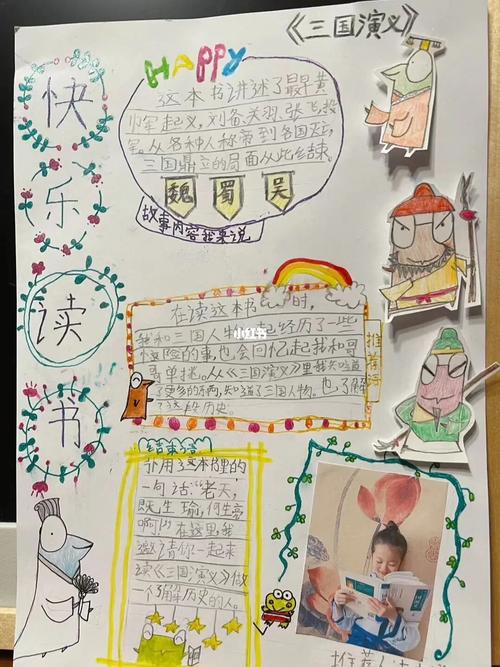 《三国演义》
HAPPY
快
乐
读
书
这本书讲述了最早黄
巾军起义，刘备，关羽，张飞，投
军。从各种人称帝到各国灭亡，
三国鼎立的局面从此结束。
魏 蜀 吴
故事内容我来说
在读这本书时，
我和三国人物一起经历了一些
惊险的事，也会回忆起我和哥
哥单挑。从《三国演义》里我知道
了更多的东西，知道了三国人物。也了解
了这段历史。
推荐词
小红书
结束语
引用了这本书里的
一句话：“老天，
既生瑜，何生亮
啊！”在这里我
邀请你一起来
读《三国演义》做
一个了解历史的人。
推荐人